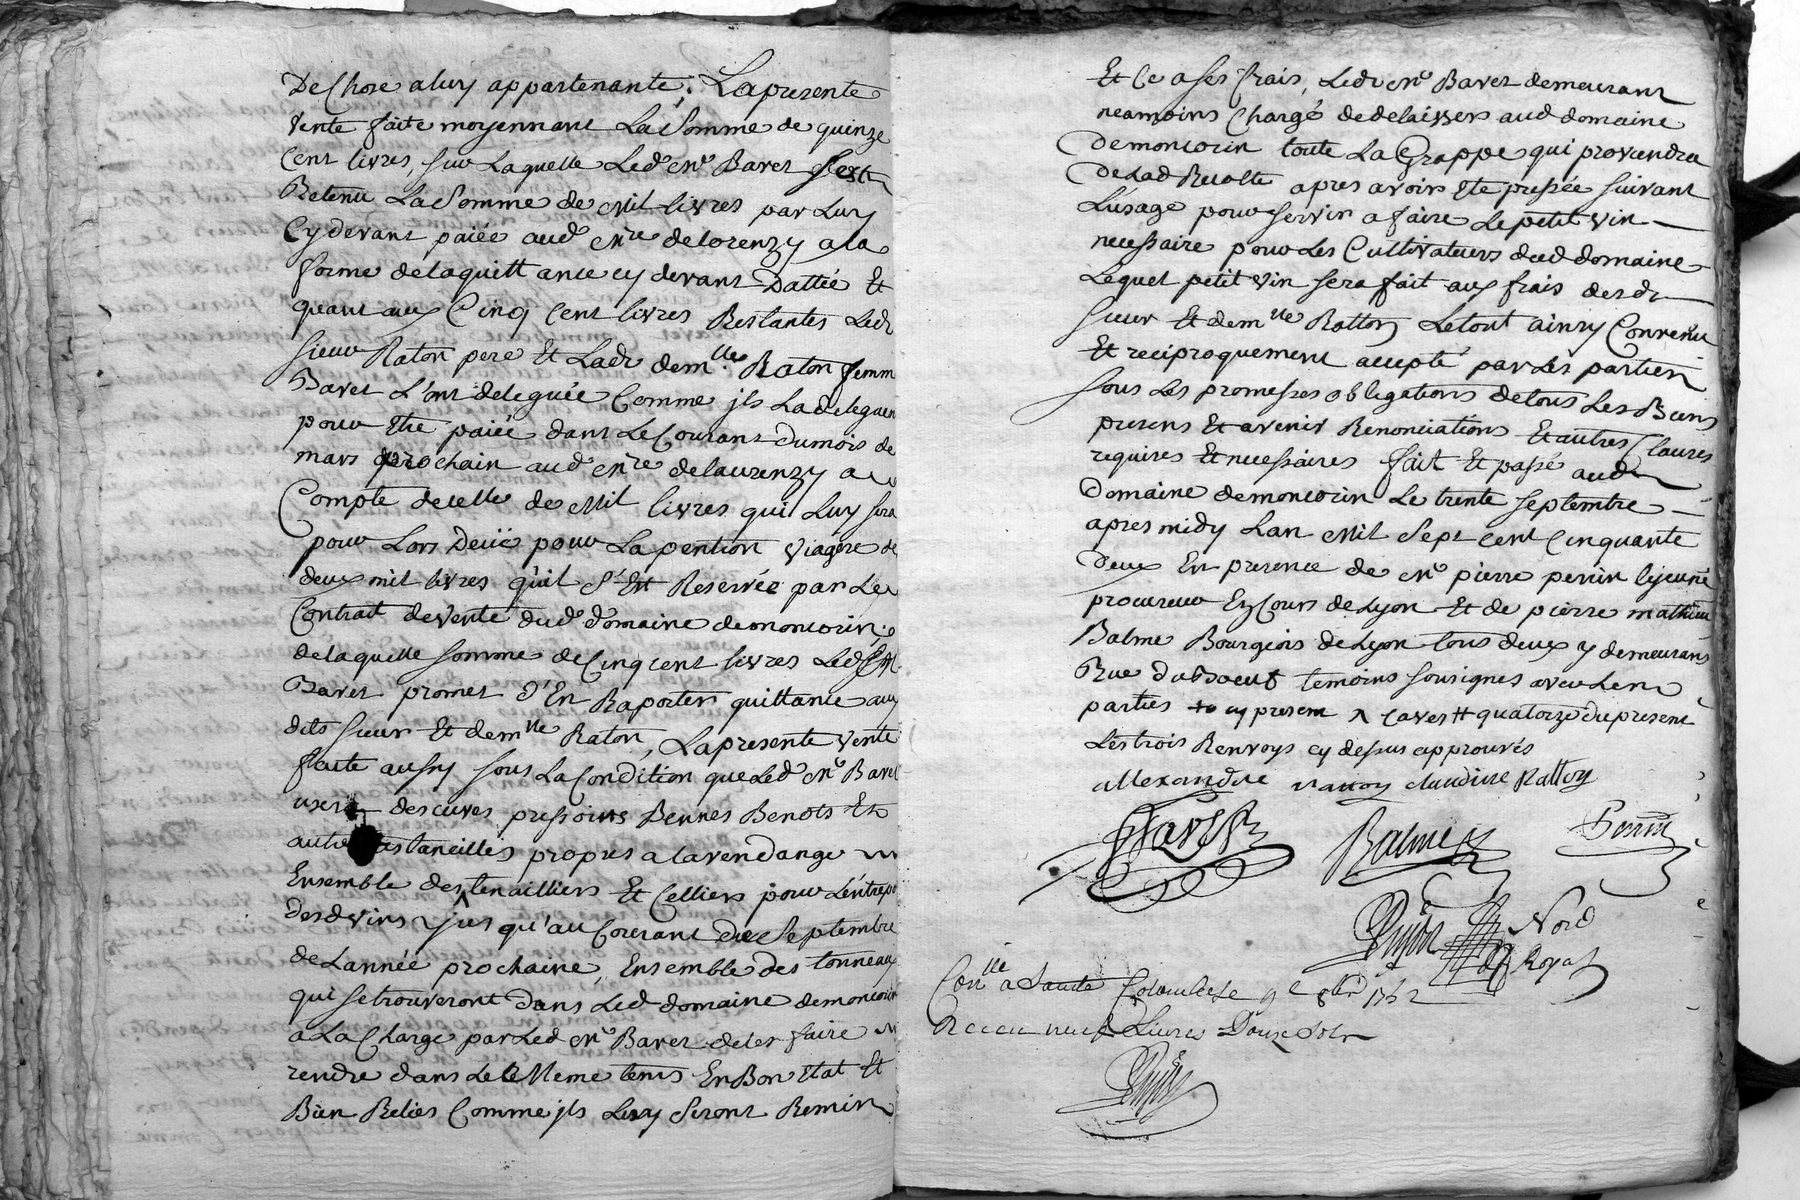 De Chose a luy appartenante; La presente
vente faite moyennant La Somme de quinze
Cent livres, sur Laquelle Led. Mre Baret s'est
Retenu La Somme de Mil livres par Luy
Cy devant paiée aud. Mre delorenzy a la
forme de la quittance cy devant Dattée Et
quant aux Cinq Cent livres Restantes Led.
sieur Raton pere Et Lade demlle Raton femm
Baret L'ont deleguée Comme jls La deleguen
pour Etre paiée dans Le Courant du mois de
mars prochain aud. Mre delaurenzy a
Compte de celle de Mil livres qui Luy sera
pour Lors Deüe pour La pention viagere de
deux mil livres quil S'Est Reservée par Le
Contrat de vente dud. domaine demoncorin;
de laquelle somme de Cinq cent livres Led. Mre
Baret promet d'En Raporter quittance aux
dits sieur Et demlle Raton, La presente vente
faite aussy sous La Condition que Led. Mre Baret
usera des cuves pressoirs Bennes Benots Et
autres ustancilles propres a la vendange
Ensemble des tenailliers Et Celliers pour L'entrepo
desd. vins jusqu'au Courant de Septembre
de L'année prochaine, Ensemble des tonneaux
qui se trouveront dans Led. domaine demoncorin
a La Charge par Led. Mre Baret de les faire
rendre dans Le Meme tems En Bon Etat Et
Bien Reliés Comme jls Luy Seront Remin
Et Ce a ses frais, Led. Mre Baret demeurant
neamoins Chargé de delaisser aud. domaine
demoncorin toute La Grappe qui proviendra
de Lad. Recolte apres avoir Ete pressée suivant
L'usage pour servir a faire Le petit vin
necessaire pour Les Cultivateurs dud. domaine
Lequel petit vin sera fait aux frais desd.
sieur Et demlle Ratton Le tout ainsy Convenu
Et reciproquement accepté par Les parties
sous Les promesses obligations de tous Les Biens
presens Et avenir Renonciations Et autres Clauses
requises Et necessaires fait Et passé aud.
Domaine demoncorin Le trente septembre
apres midy Lan Mil Sept cent Cinquante
Deux En presence de Mre pierre perrin lejeune
procureur Ez Cours de Lyon Et de pierre mathieu
Balme Bourgeois de Lyon tous deux y demeurans
Rue duboeuf temoins sousignes avec Les
parties cy present caves quatorze du present
Les trois Renvoys cy dessus approuvés
allexandre ratton claudine Ratton
Baret Balme Perrin
Nord
Royal
Conlle a Sainte Colombe Le 9e 8bre 1752
Receu neuf Livres Douze Sols